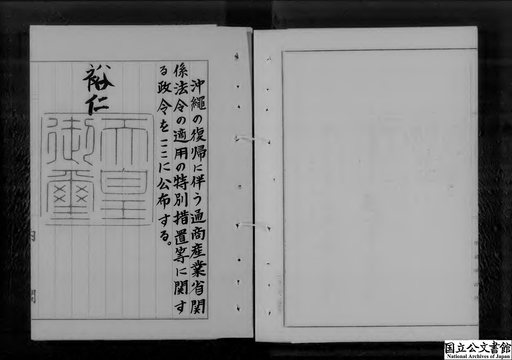 沖繩の復帰に伴う通商産業省関
係法令の適用の特別措置等に関す
る政令をここに公布する。
裕仁
天皇
御璽
内
閣
国立公文書館
National Archives of Japan